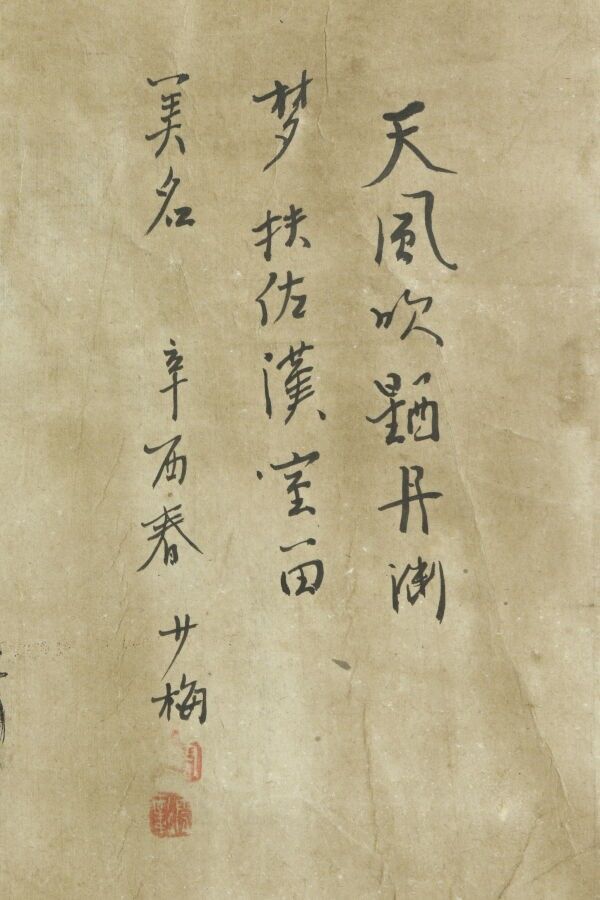 天風吹醒丹渊
梦扶佐漢室畄
美名 辛酉春 少梅